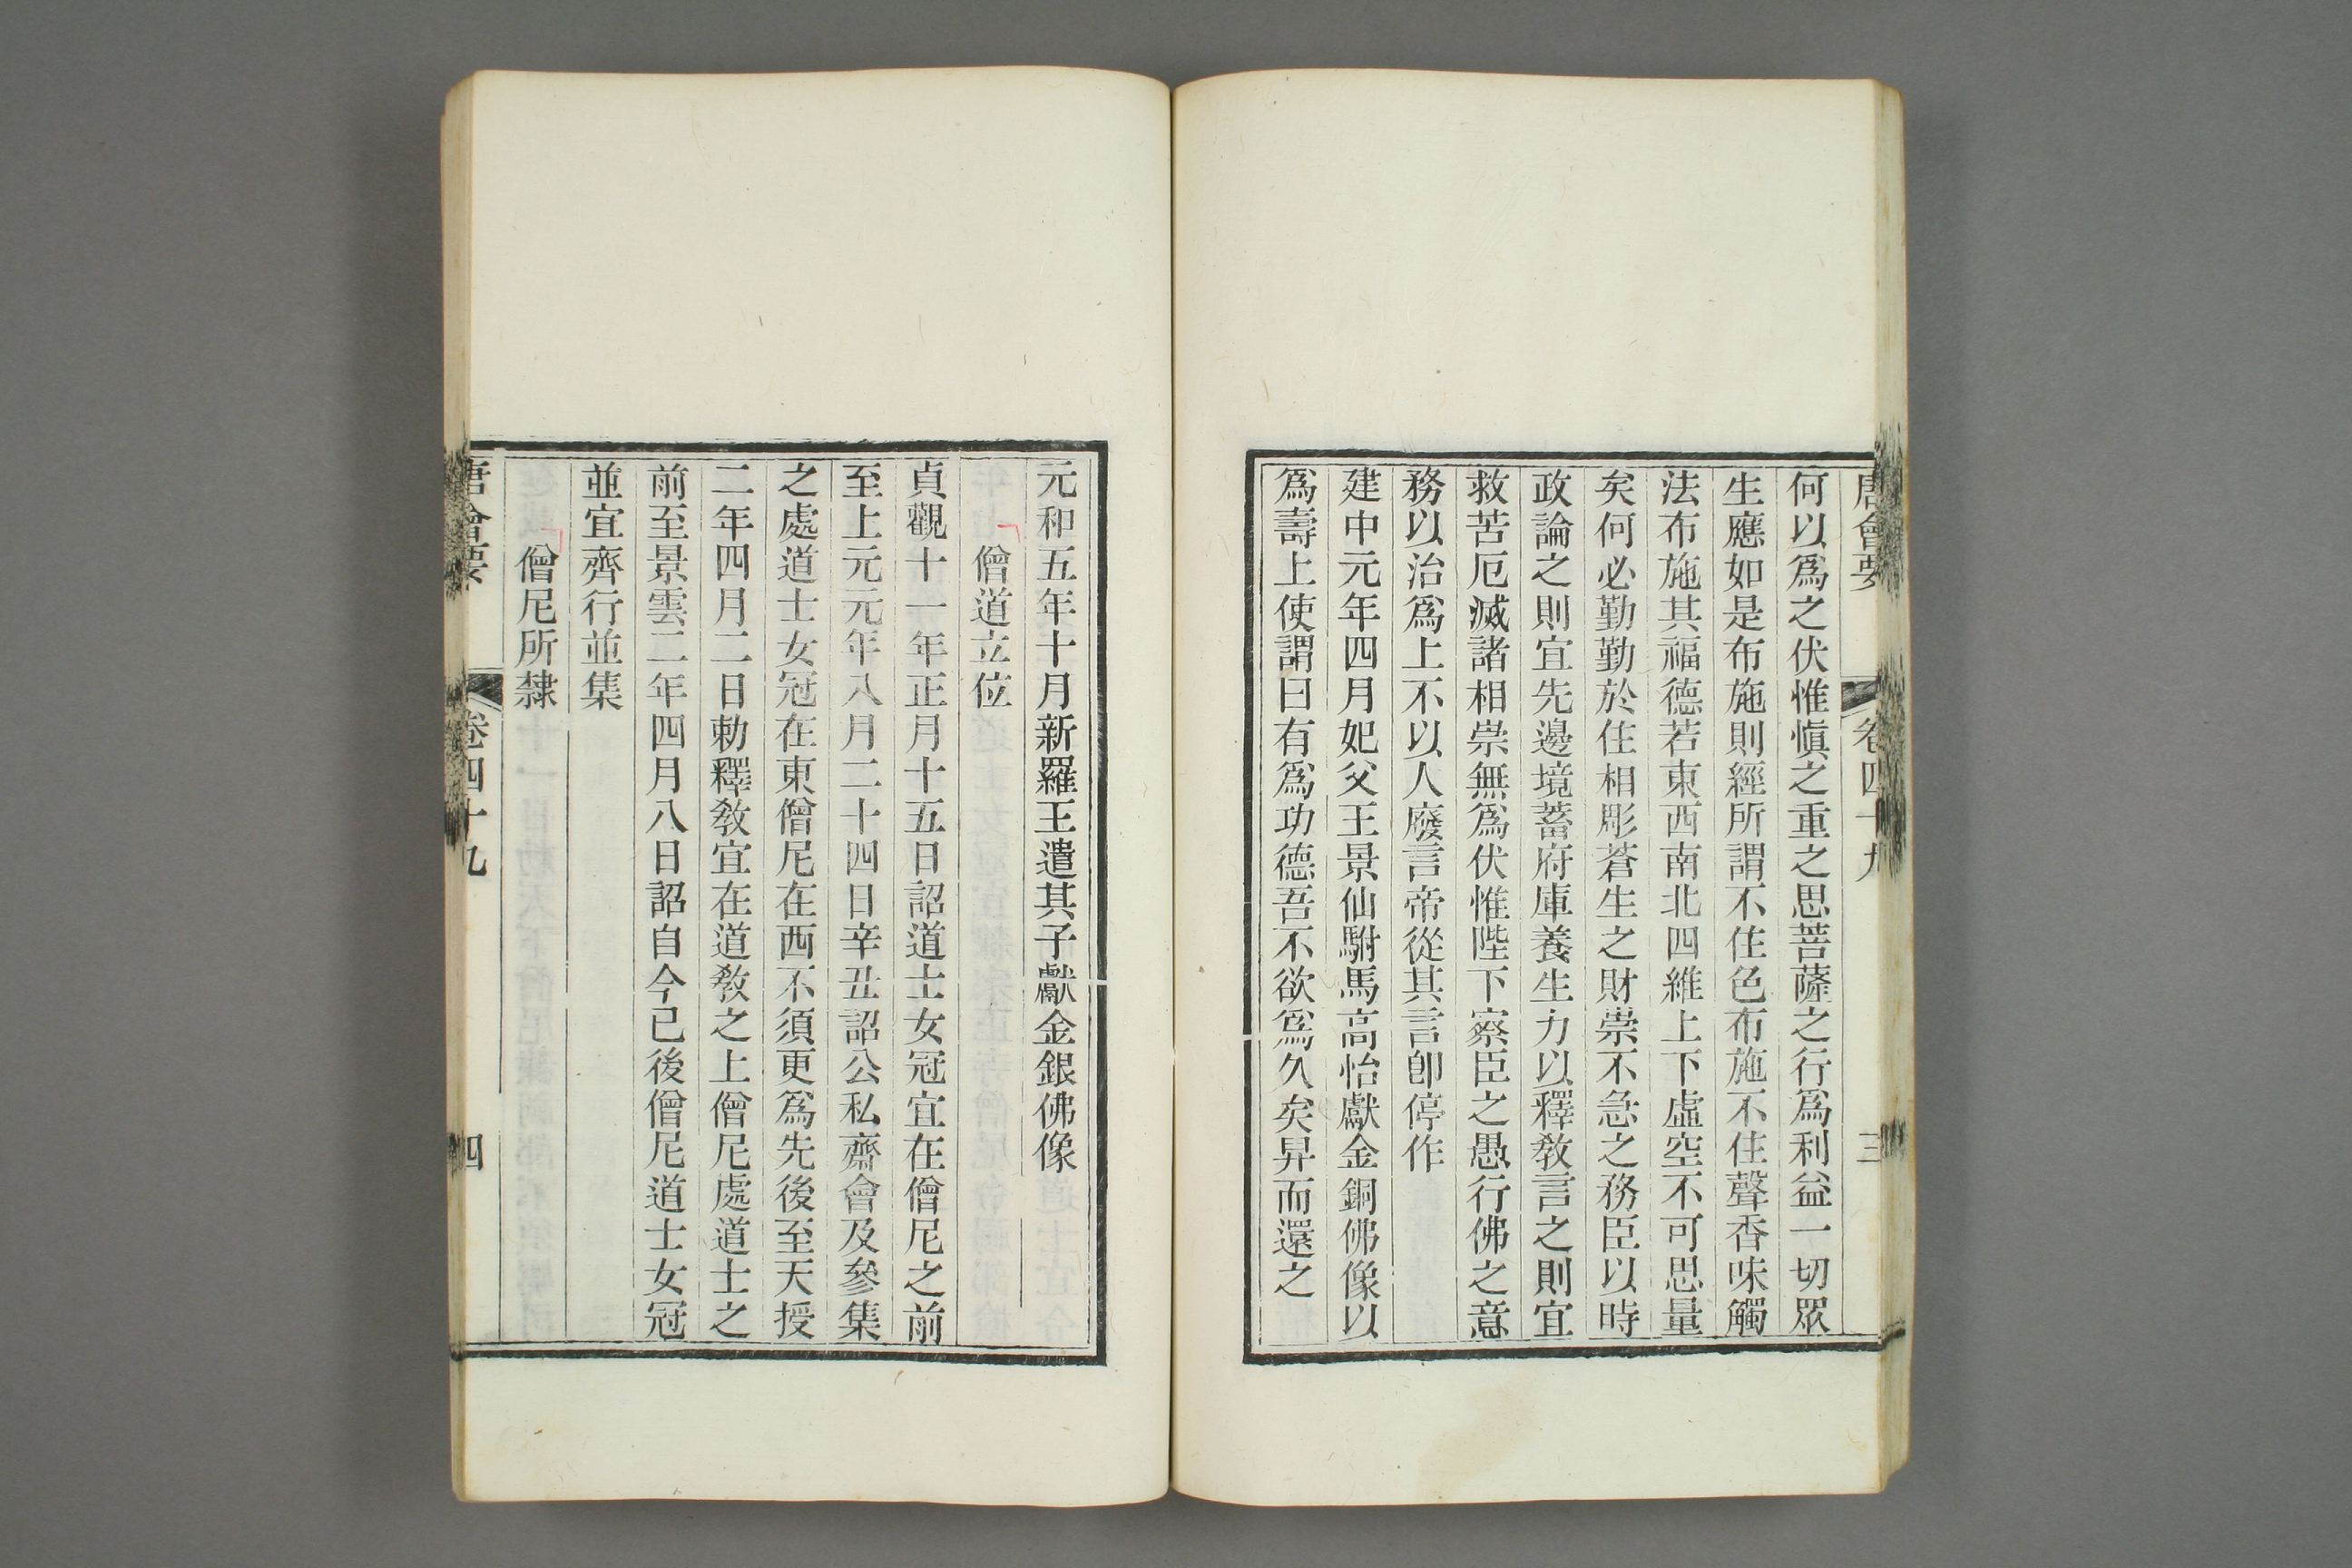 唐會要 卷四十九 三
何以爲之伏惟愼之重之思菩薩之行爲利益一切眾
生應如是布施則經所謂不住色布施不住聲香味觸
法布施其福德若東西南北四維上下虛空不可思量
矣何必勤勤於住相彫蒼生之財崇不急之務臣以時
政論之則宜先邊境蓄府庫養生力以釋教言之則宜
救苦厄滅諸相崇無爲伏惟陛下察臣之愚行佛之意
務以治爲上不以人廢言帝從其言卽停作
建中元年四月妃父王景仙駙馬高怡獻金銅佛像以
爲壽上使謂曰有爲功德吾不欲爲久矣昇而還之
元和五年十月新羅王遣其子獻金銀佛像
僧道立位
貞觀十一年正月十五日詔道士女冠宜在僧尼之前
至上元元年八月二十四日辛丑詔公私齋會及參集
之處道士女冠在東僧尼在西不須更爲先後至天授
二年四月二日勅釋教宜在道教之上僧尼處道士之
前至景雲二年四月八日詔自今已後僧尼道士女冠
並宜齊行並集
僧尼所隸
唐會要 卷四十九 四